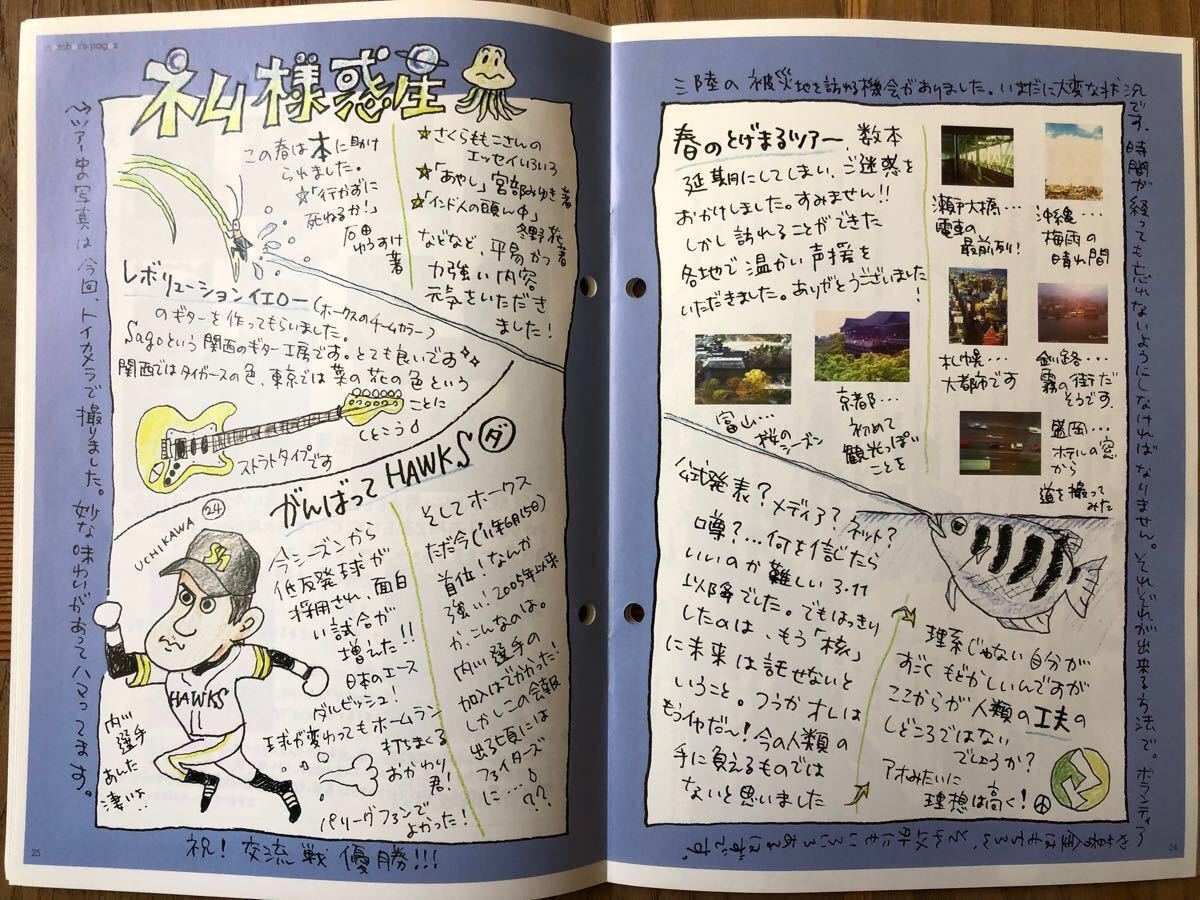 member's pages
ネム様惑星
この春は本に助け
られました。
☆「行かずに
死ねるか！」
石田
ゆうすけ
著
☆さくらももこさんの
エッセイいろいろ
☆「あやし」宮部みゆき著
☆「インド人の頭ん中」
冬野花著
などなど、平易かつ
力強い内容
元気をいただき
ました！
レボリューションイエロー（ホークスのチームカラー）
のギターを作ってもらいました。
Sagoという関西のギター工房です。とても良いです
関西ではタイガースの色、東京では菜の花の色という
ことに
しとこう♪
ストラトタイプです
がんばってHAWKS ダ
UCHIKAWA
24
HAWKS
内川
選手
あんた
凄いよ…
今シーズンから
低反発球が
採用され、面白
い試合が
増えた!!
日本のエース
ダルビッシュ！
球が変わってもホームラン
打ちまくる
おかわり
君！
パリーグファンで
よかった！
そしてホークス
ただ今('11年6月15日)
首位！なんか
強い！2005年以来
か、こんなのは。
内川選手の
加入はでかかった！
しかしこの会報
出る頃には
ファイターズ
に…
??
祝！交流戦優勝!!!
ツアー中写真は今回、トイカメラで撮りました。妙な味わいがあってハマってます。
25
三陸の被災地を訪ねる機会がありました。いまだに大変な状況
です。時間が経っても忘れないようにしなければなりません。それぞれが出来る方法で。ボランティア
春のとげまるツアー、数本
延期にしてしまい、ご迷惑を
おかけしました。すみません!!
しかし訪れることができた
各地で温かい声援を
いただきました。ありがとうございました
！
瀬戸大橋…
電車の
最前列！
沖縄…
梅雨の
晴れ間
札幌…
大都市です
釧路…
霧の街だ
そうです。
富山…
桜の
シーズン
京都…
初めて
観光っぽい
ことを
盛岡…
ホテルの窓
から
道を撮って
みた
公式発表？メディア？ネット？
噂？…何を信じたら
いいのか難しい3.11
以降でした。でもはっきり
したのは、もう「核」
に未来は託せないと
いうこと。つうかオレは
もうイヤだ〜！今の人類の
手に負えるものでは
ないと思いました
理系じゃない自分が
すごくもどかしいんですが
ここからが人類の工夫の
しどころではない
でしょうか？
アホみたいに
理想は高く！
24